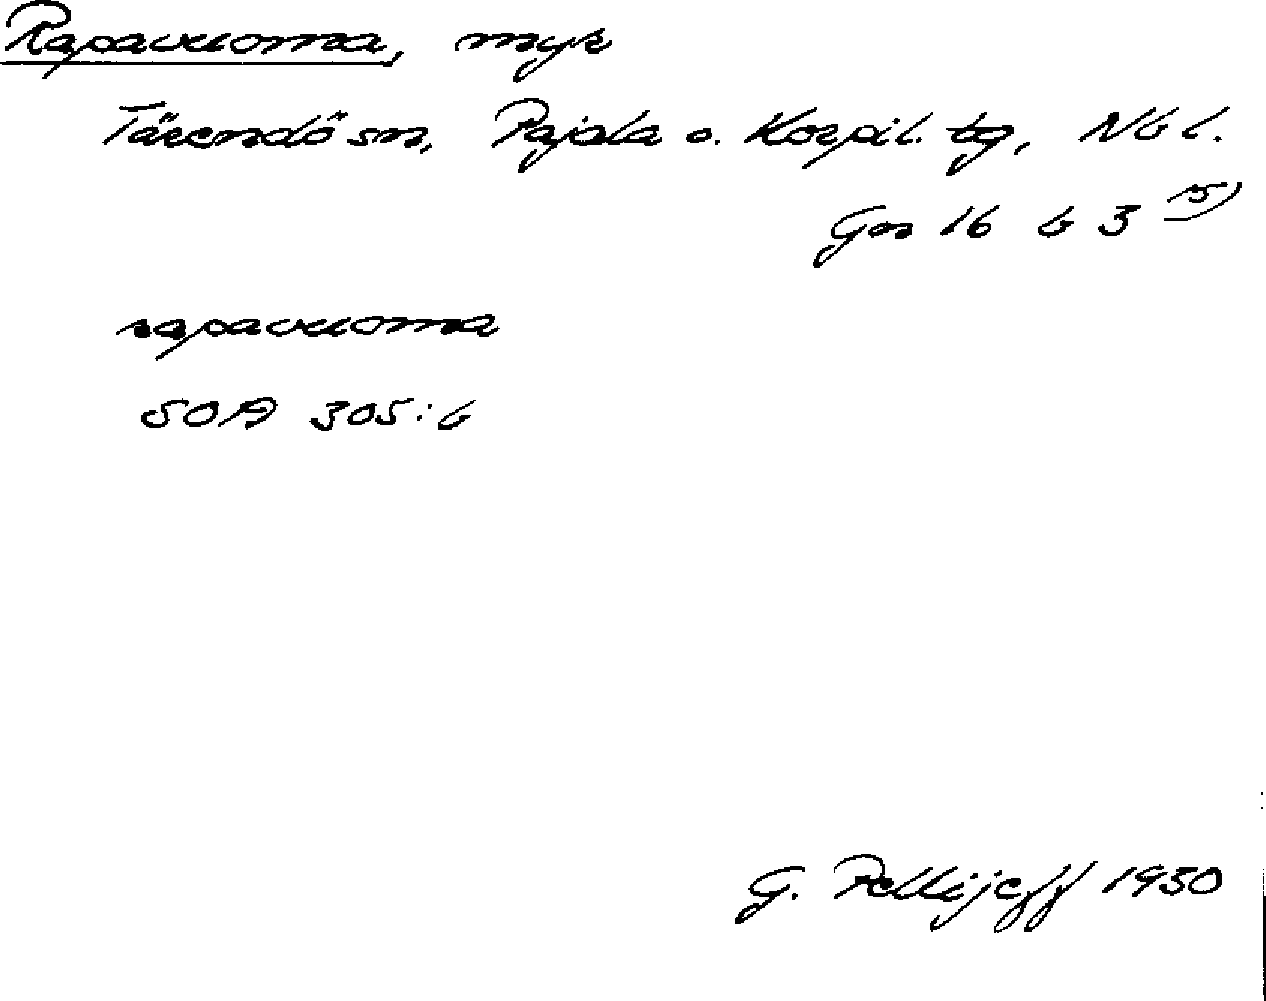 Rapavuoma, myr
Tärendö sn, Pajala o. Korpil. tg, Nb l.
Gn 16 b 3 15)
rapavuoma
SOA 305:6
G. Pellijeff 1950